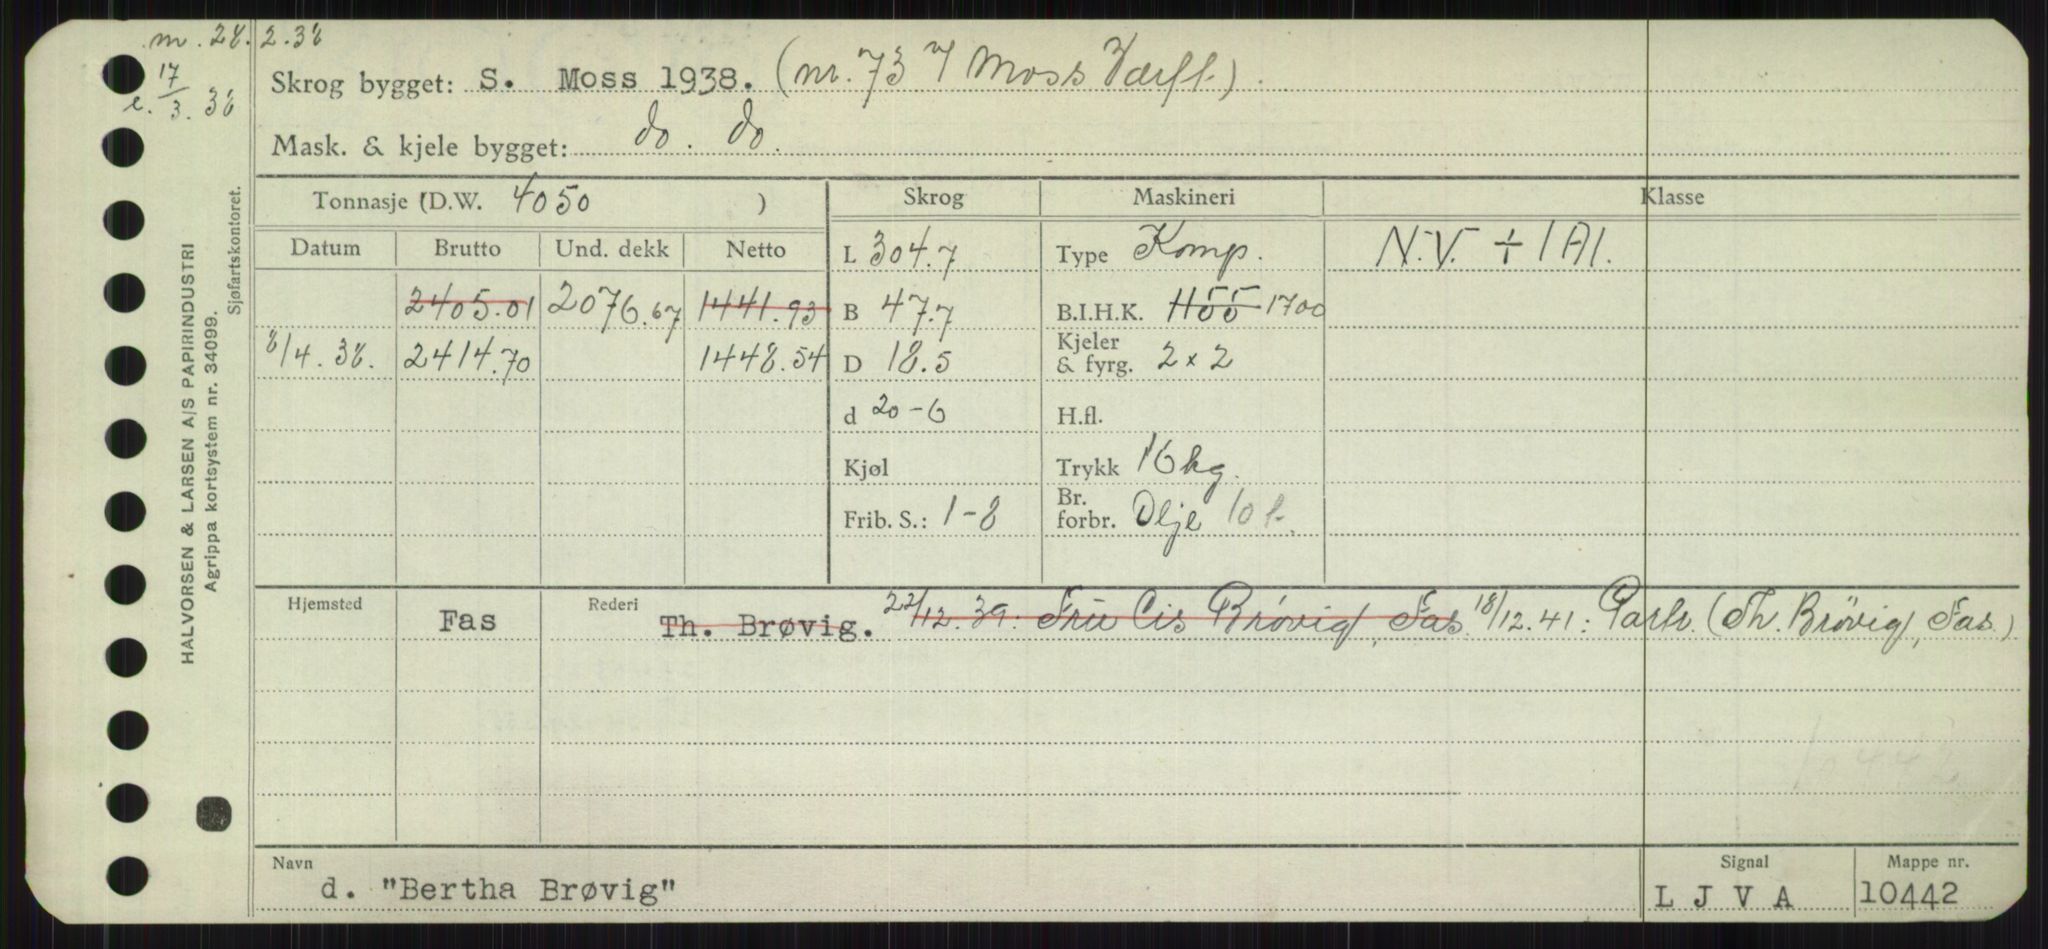 m. 28.2.38
17
l. 3. 38
Skrog bygget: S. Moss 1938. (nr. 73 Moss Værft.)
Mask. & kjele bygget: do. do.
HALVORSEN & LARSEN A/S PAPIRINDUSTRI
Agrippa kortsystem nr. 34099.
Sjøfartskontoret.
Tonnasje (D.W. 4050 ) Skrog Maskineri Klasse
Datum Brutto Und. dekk Netto L 304.7 Type Komp. N.V. + 1A1.
2405.01 2076.67 1441.93 B 47.7 B.I.H.K. 1700
8/4.38. 2414.70 1448.54 D 18.5 Kjeler & fyrg. 2 x 2
d 20-6 H.fl.
Kjøl Trykk 16 kg.
Frib. S.: 1-8 Br. forbr. Olje 10 t.
Hjemsted Fas Rederi Th. Brøvig. 22/12.39: Fru Cis Brøvig, Fas 18/12.41: Partr. (Th. Brøvig, Fas)
10442
Navn Signal Mappe nr.
d. "Bertha Brøvig" L J V A 10442